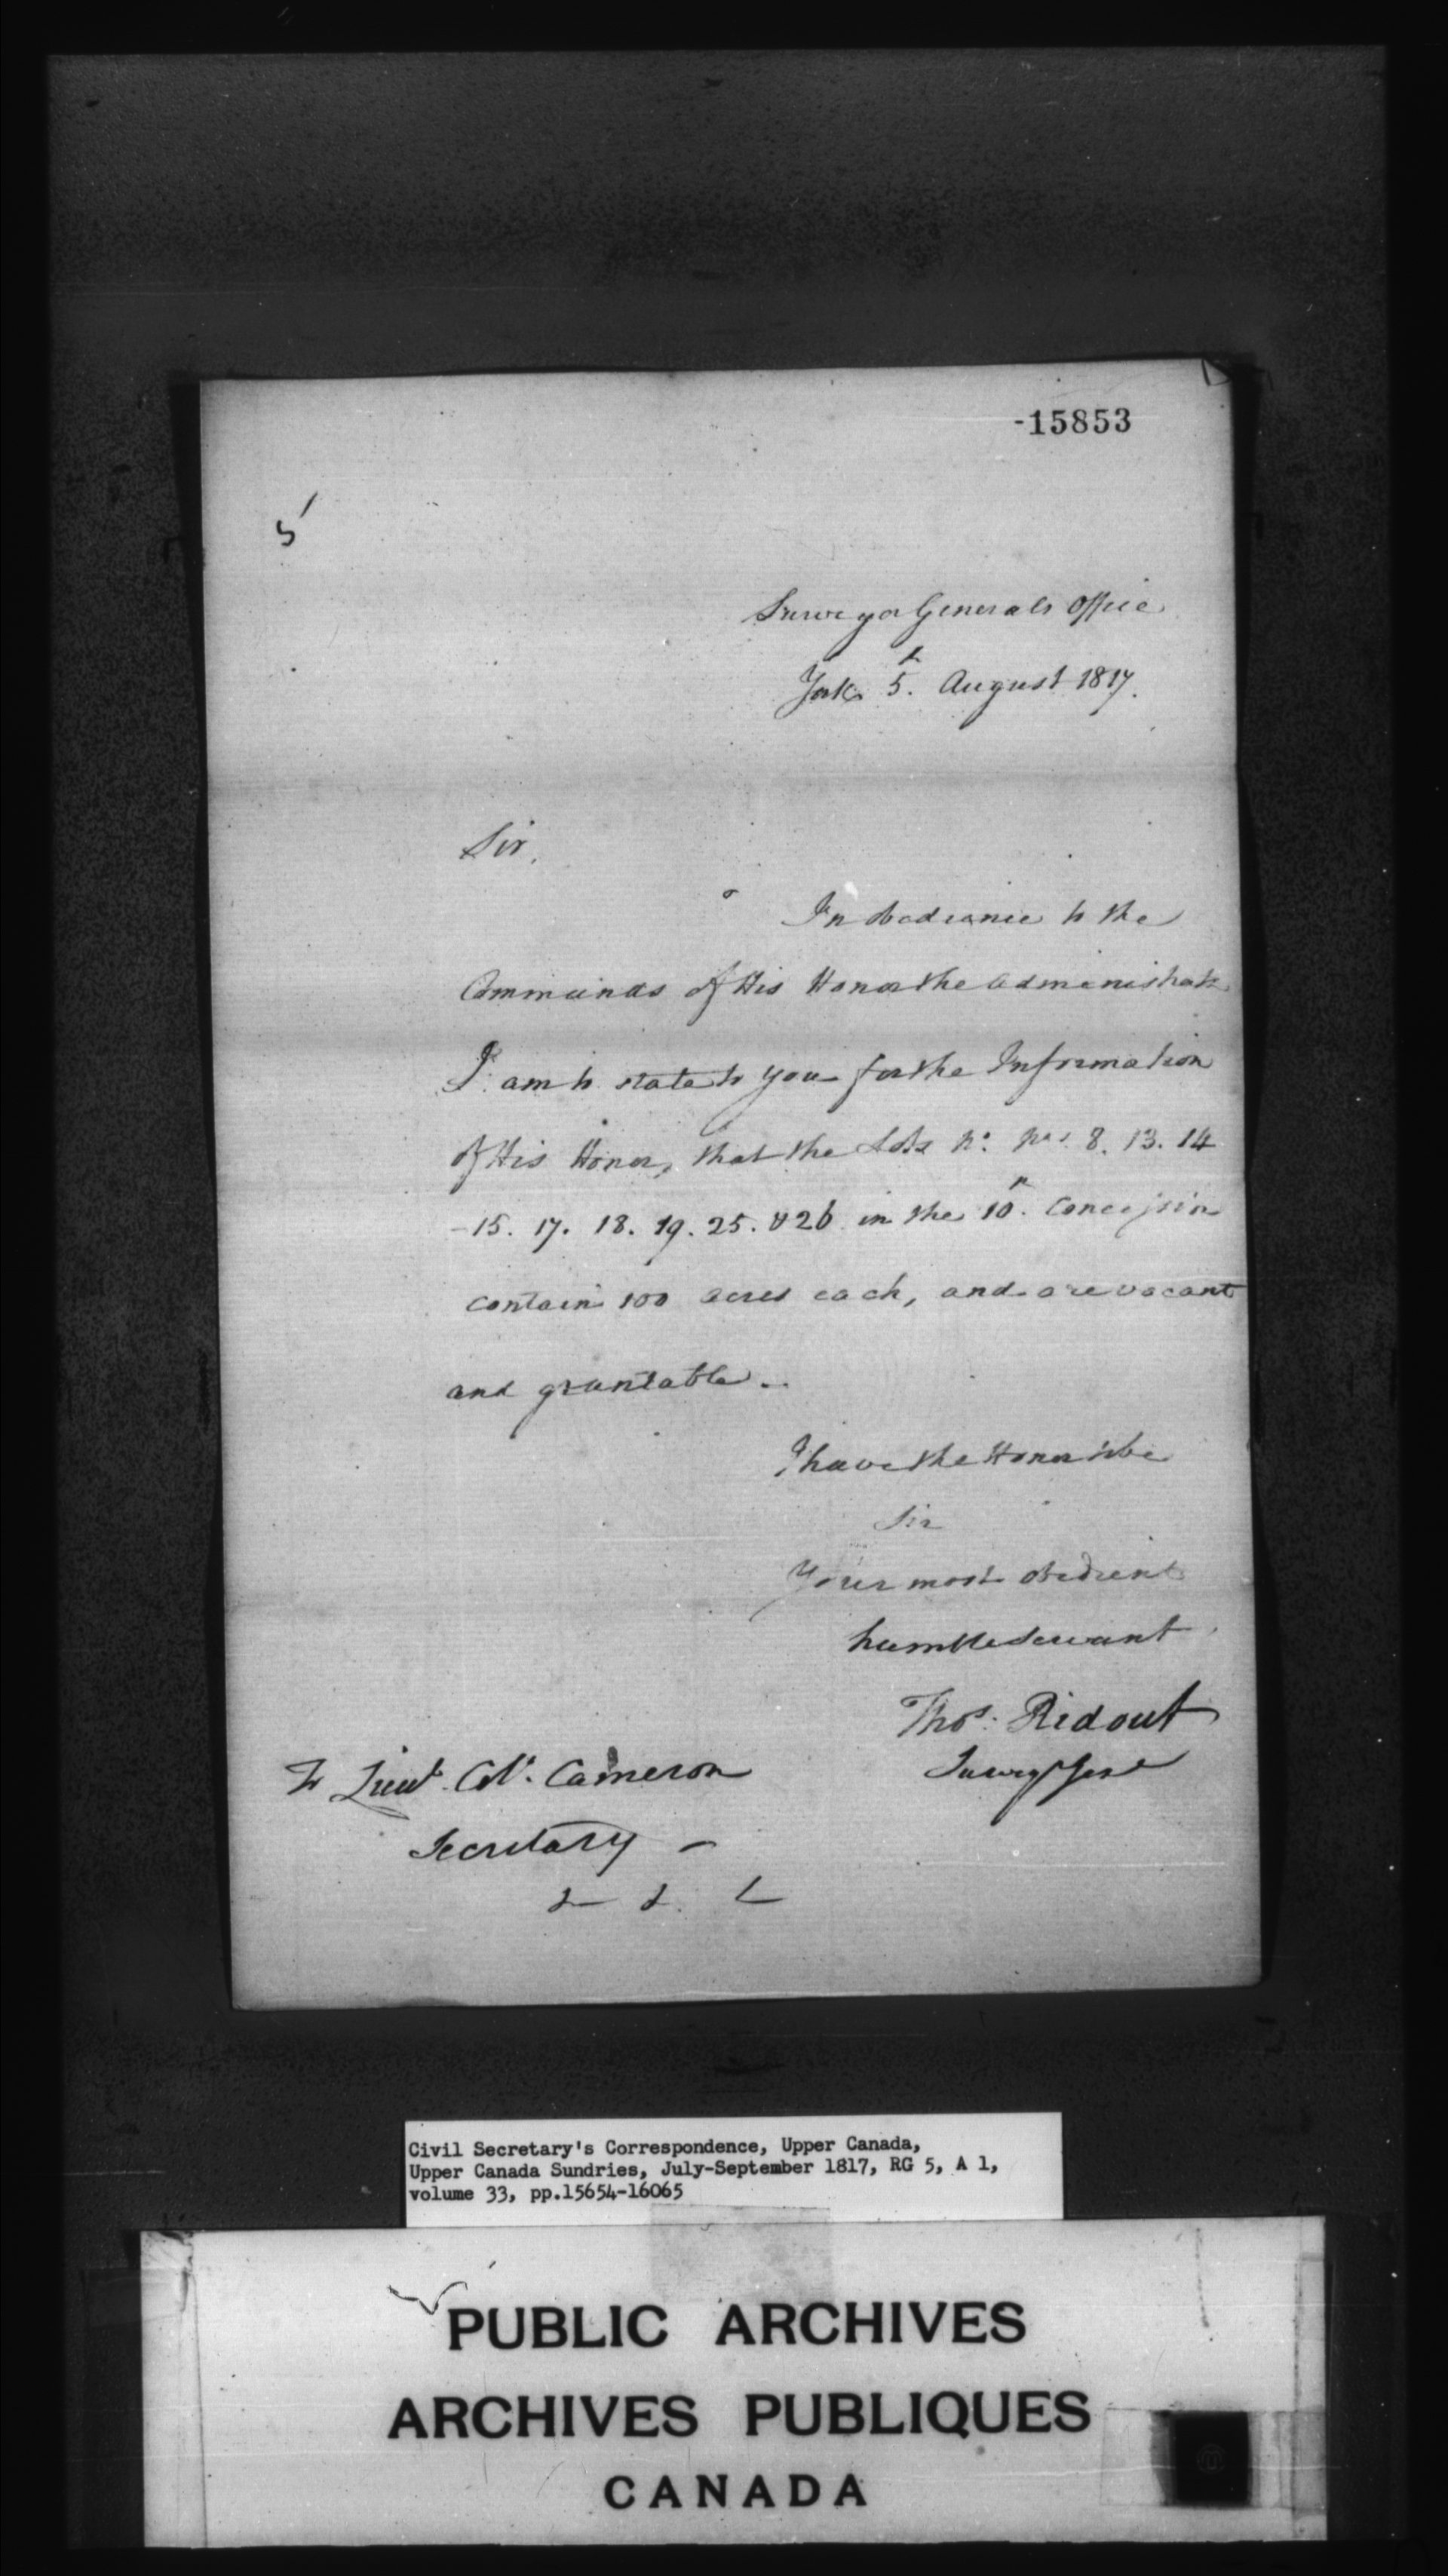 -15853
5
Surveyor Generals Office
York 5th. August 1817.
Sir,
In Obedience to the
Commands of His Honor the Administrator
I am to state to you for the Information
of His Honor, that the Lots No. Nos. 8. 13. 14
-15. 17. 18. 19. 25. & 26 in the 10th. Concession
contain 100 acres each, and are vacant
and grantable.-
I have the Honor to be
Sir
Your most obedient
humble Servant
Thos. Ridout
Survey Genl
To Lieut. Col. Cameron
Secretary -
&c &c. &c
Civil Secretary's Correspondence, Upper Canada,
Upper Canada Sundries, July-September 1817, RG 5, A 1,
volume 33, pp.15654-16065
PUBLIC ARCHIVES
ARCHIVES PUBLIQUES
CANADA